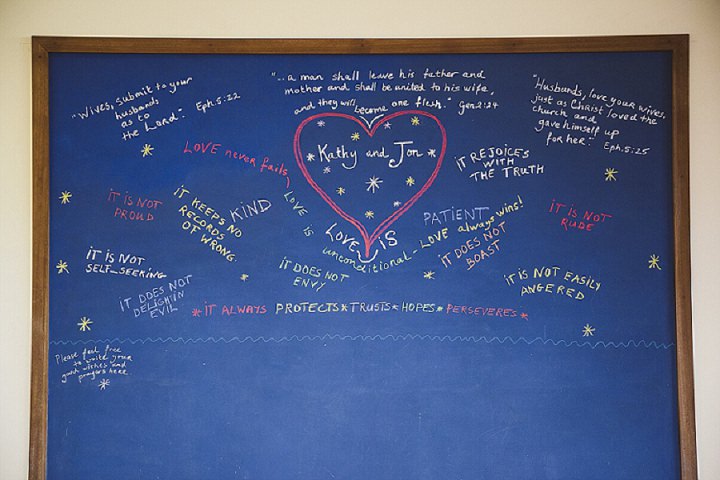 "Wives, submit to your
husbands
as to
the Land". Eph.5:22
"...a man shall leave his father and
mother and shall be united to his wife,
and they will become one flesh." Gen 2:24
"Husbands, love your wives,
just as Christ loved the
church and
gave himself up
for her". Eph.5:25
Kathy and Jon
LOVE never fails
IT REJOICES
WITH
THE TRUTH
IT IS NOT
PROUD
IT KEEPS NO
RECORDS
OT WRONG
KIND
LOVE is unconditional - LOVE always wins!
LOVE IS
PATIENT
IT IS NOT
RUDE
IT IS NOT
SELF-SEEKING
IT DOES NOT
DELIGH IN
EVIL
IT DOES NOT
ENVY
IT DOES NOT
BOAST
IT IS NOT EASILY
ANGERED
*IT ALWAYS PROTECTS*TRUSTS*HOPES*PERSEVERES*
Please feel free
to write your
good wishes and
prayers here